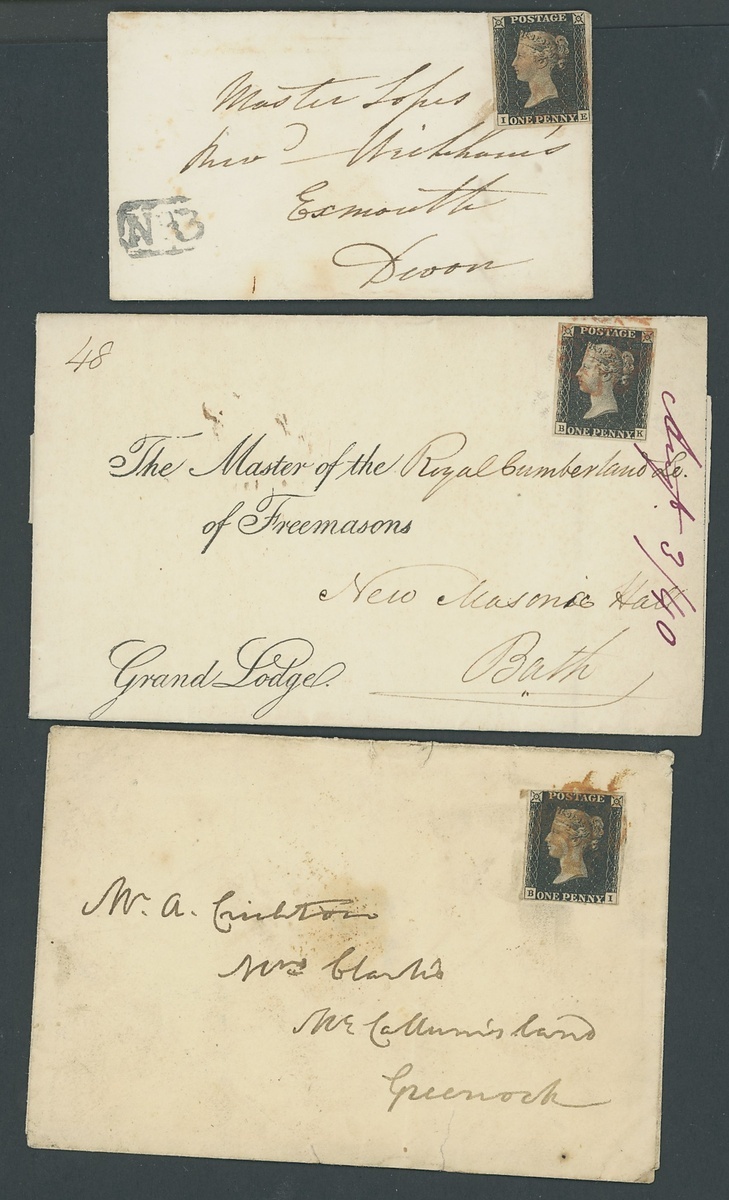 POSTAGE
I ONE PENNY E
Master Lopes
Exmouth
Devon
48
POSTAGE
B ONE PENNY K
The Master of the Royal Cumberland Le.
of Freemasons
New Masonic Hall
Bath
Grand Lodge.
3/40
POSTAGE
B ONE PENNY I
Mr. A. Crichton
Mrs Clark's
McCallum's land
Greenock